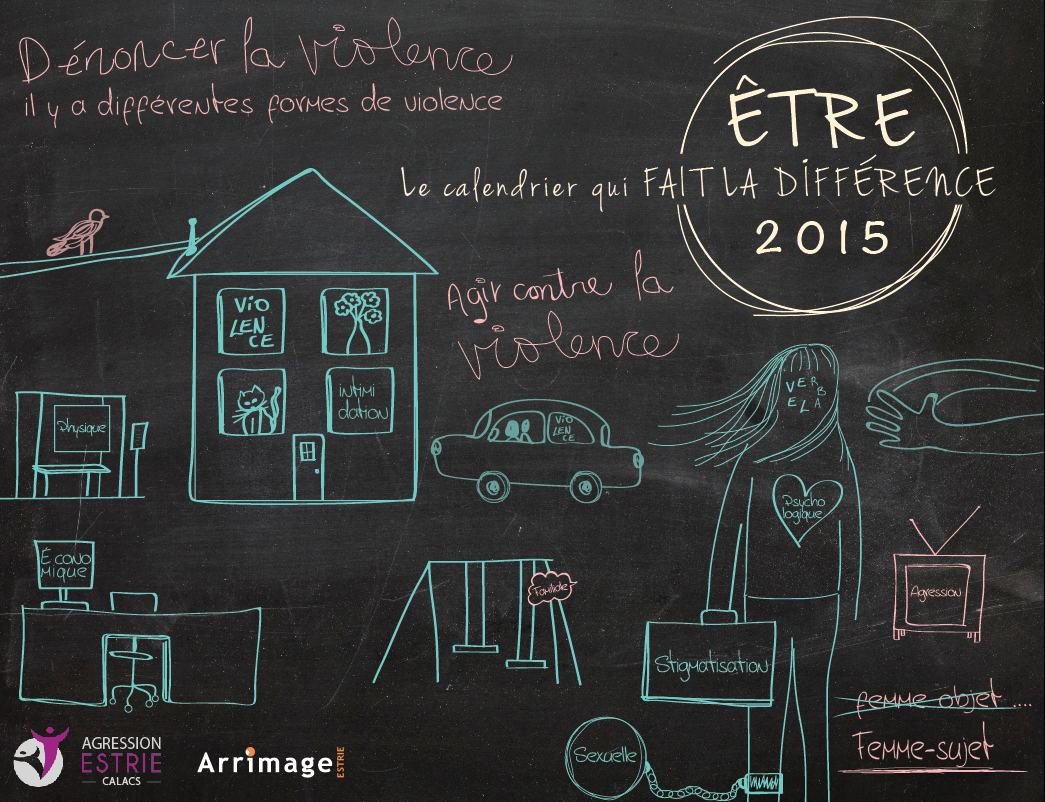 Dénoncer la violence
il y a différentes formes de violence
ÊTRE
Le calendrier qui FAIT LA DIFFÉRENCE
2015
Agir contre la
violence
VIO
LEN
CE
INTIMI
dation
Physique
VIO
LEN
CE
VERBALE
Psycho
logique
ÉCONO
MIQUE
Familiale
Agression
Stigmatisation
femme objet ....
Femme-sujet
Sexuelle
AGRESSION
ESTRIE
CALACS
Arrimage
ESTRIE